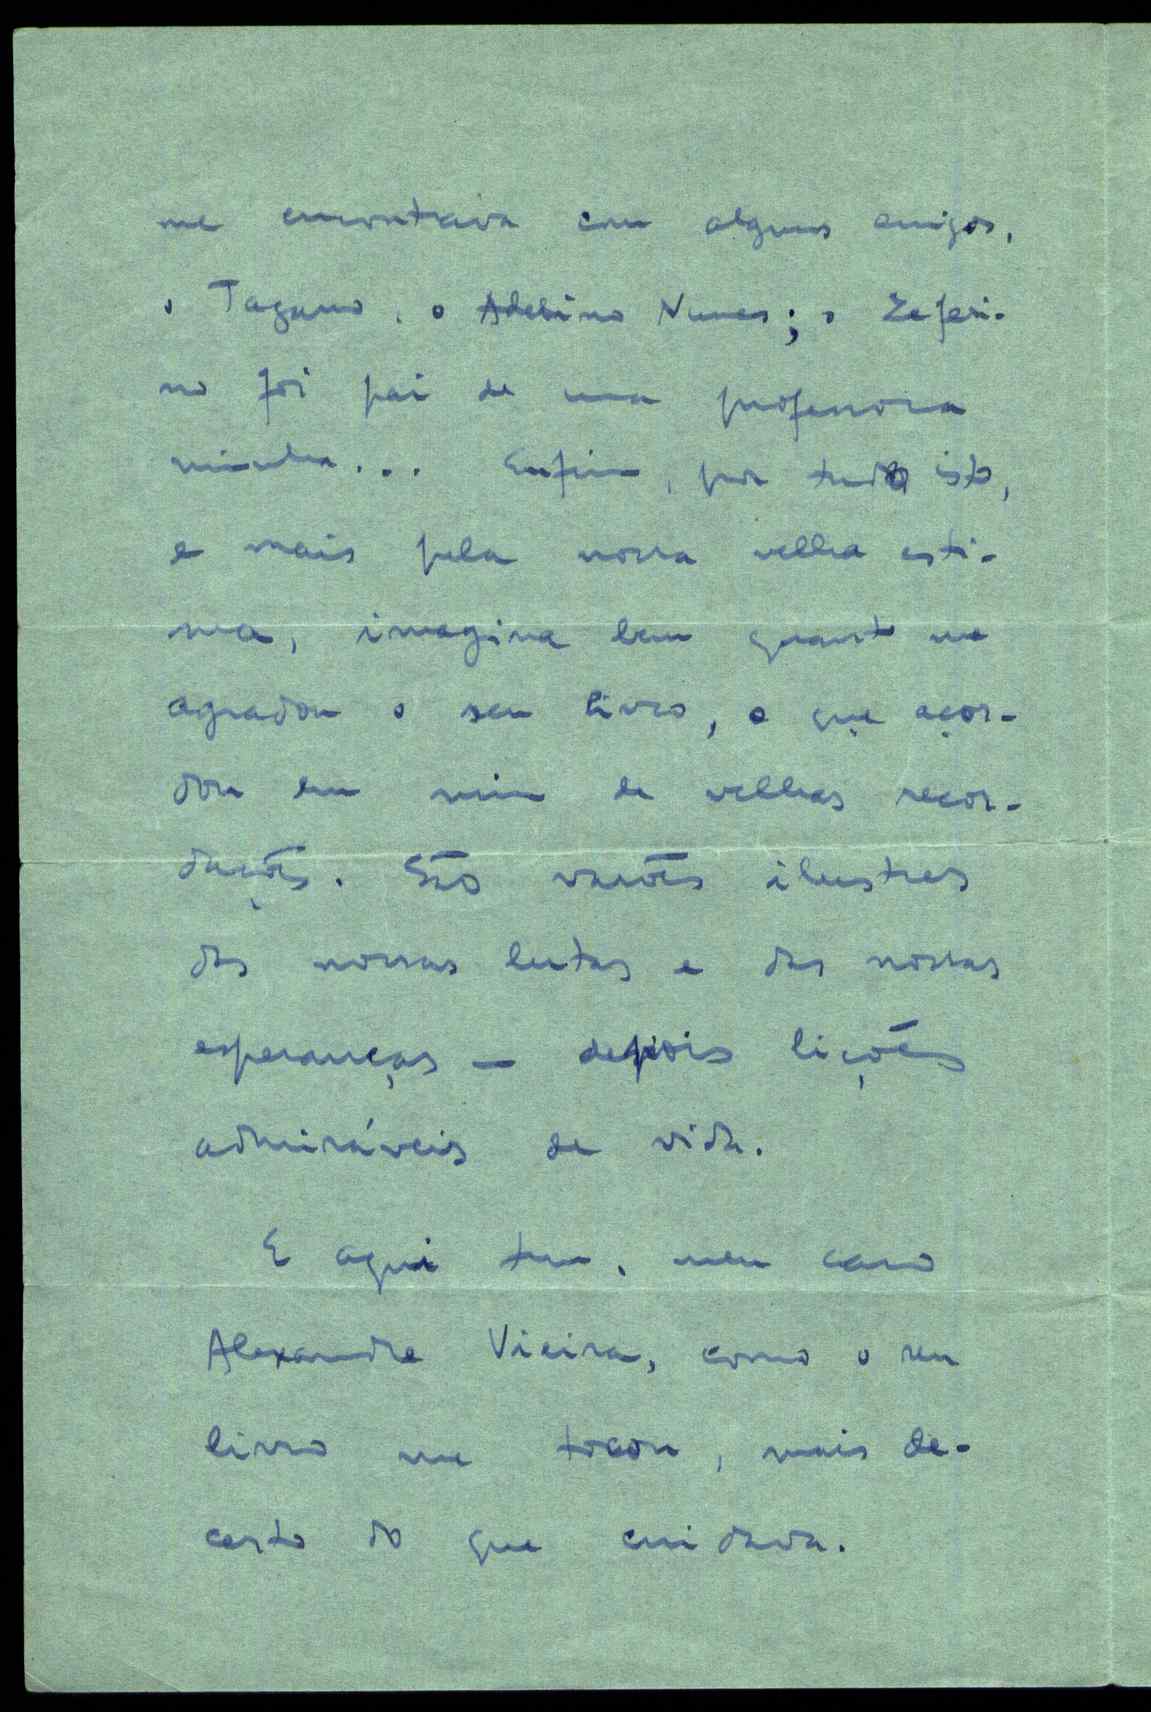 me encontrava com alguns amigos,
o Tagarro, o Adelino Nunes; o Zeferi-
no foi pai de uma professora
minha... Enfim, por tudo isto,
e mais pela nossa velha esti-
ma, imagina bem quanto me
agradou o seu livro, o que açor-
dou em mim de velhas recor-
dações. São varões ilustres
das nossas lutas e das nossas
esperanças — depois lições
admiráveis de vida.
E aqui tem, meu caro
Alexandre Vieira, como o seu
livro me tocou, mais de-
certo do que cuidava.